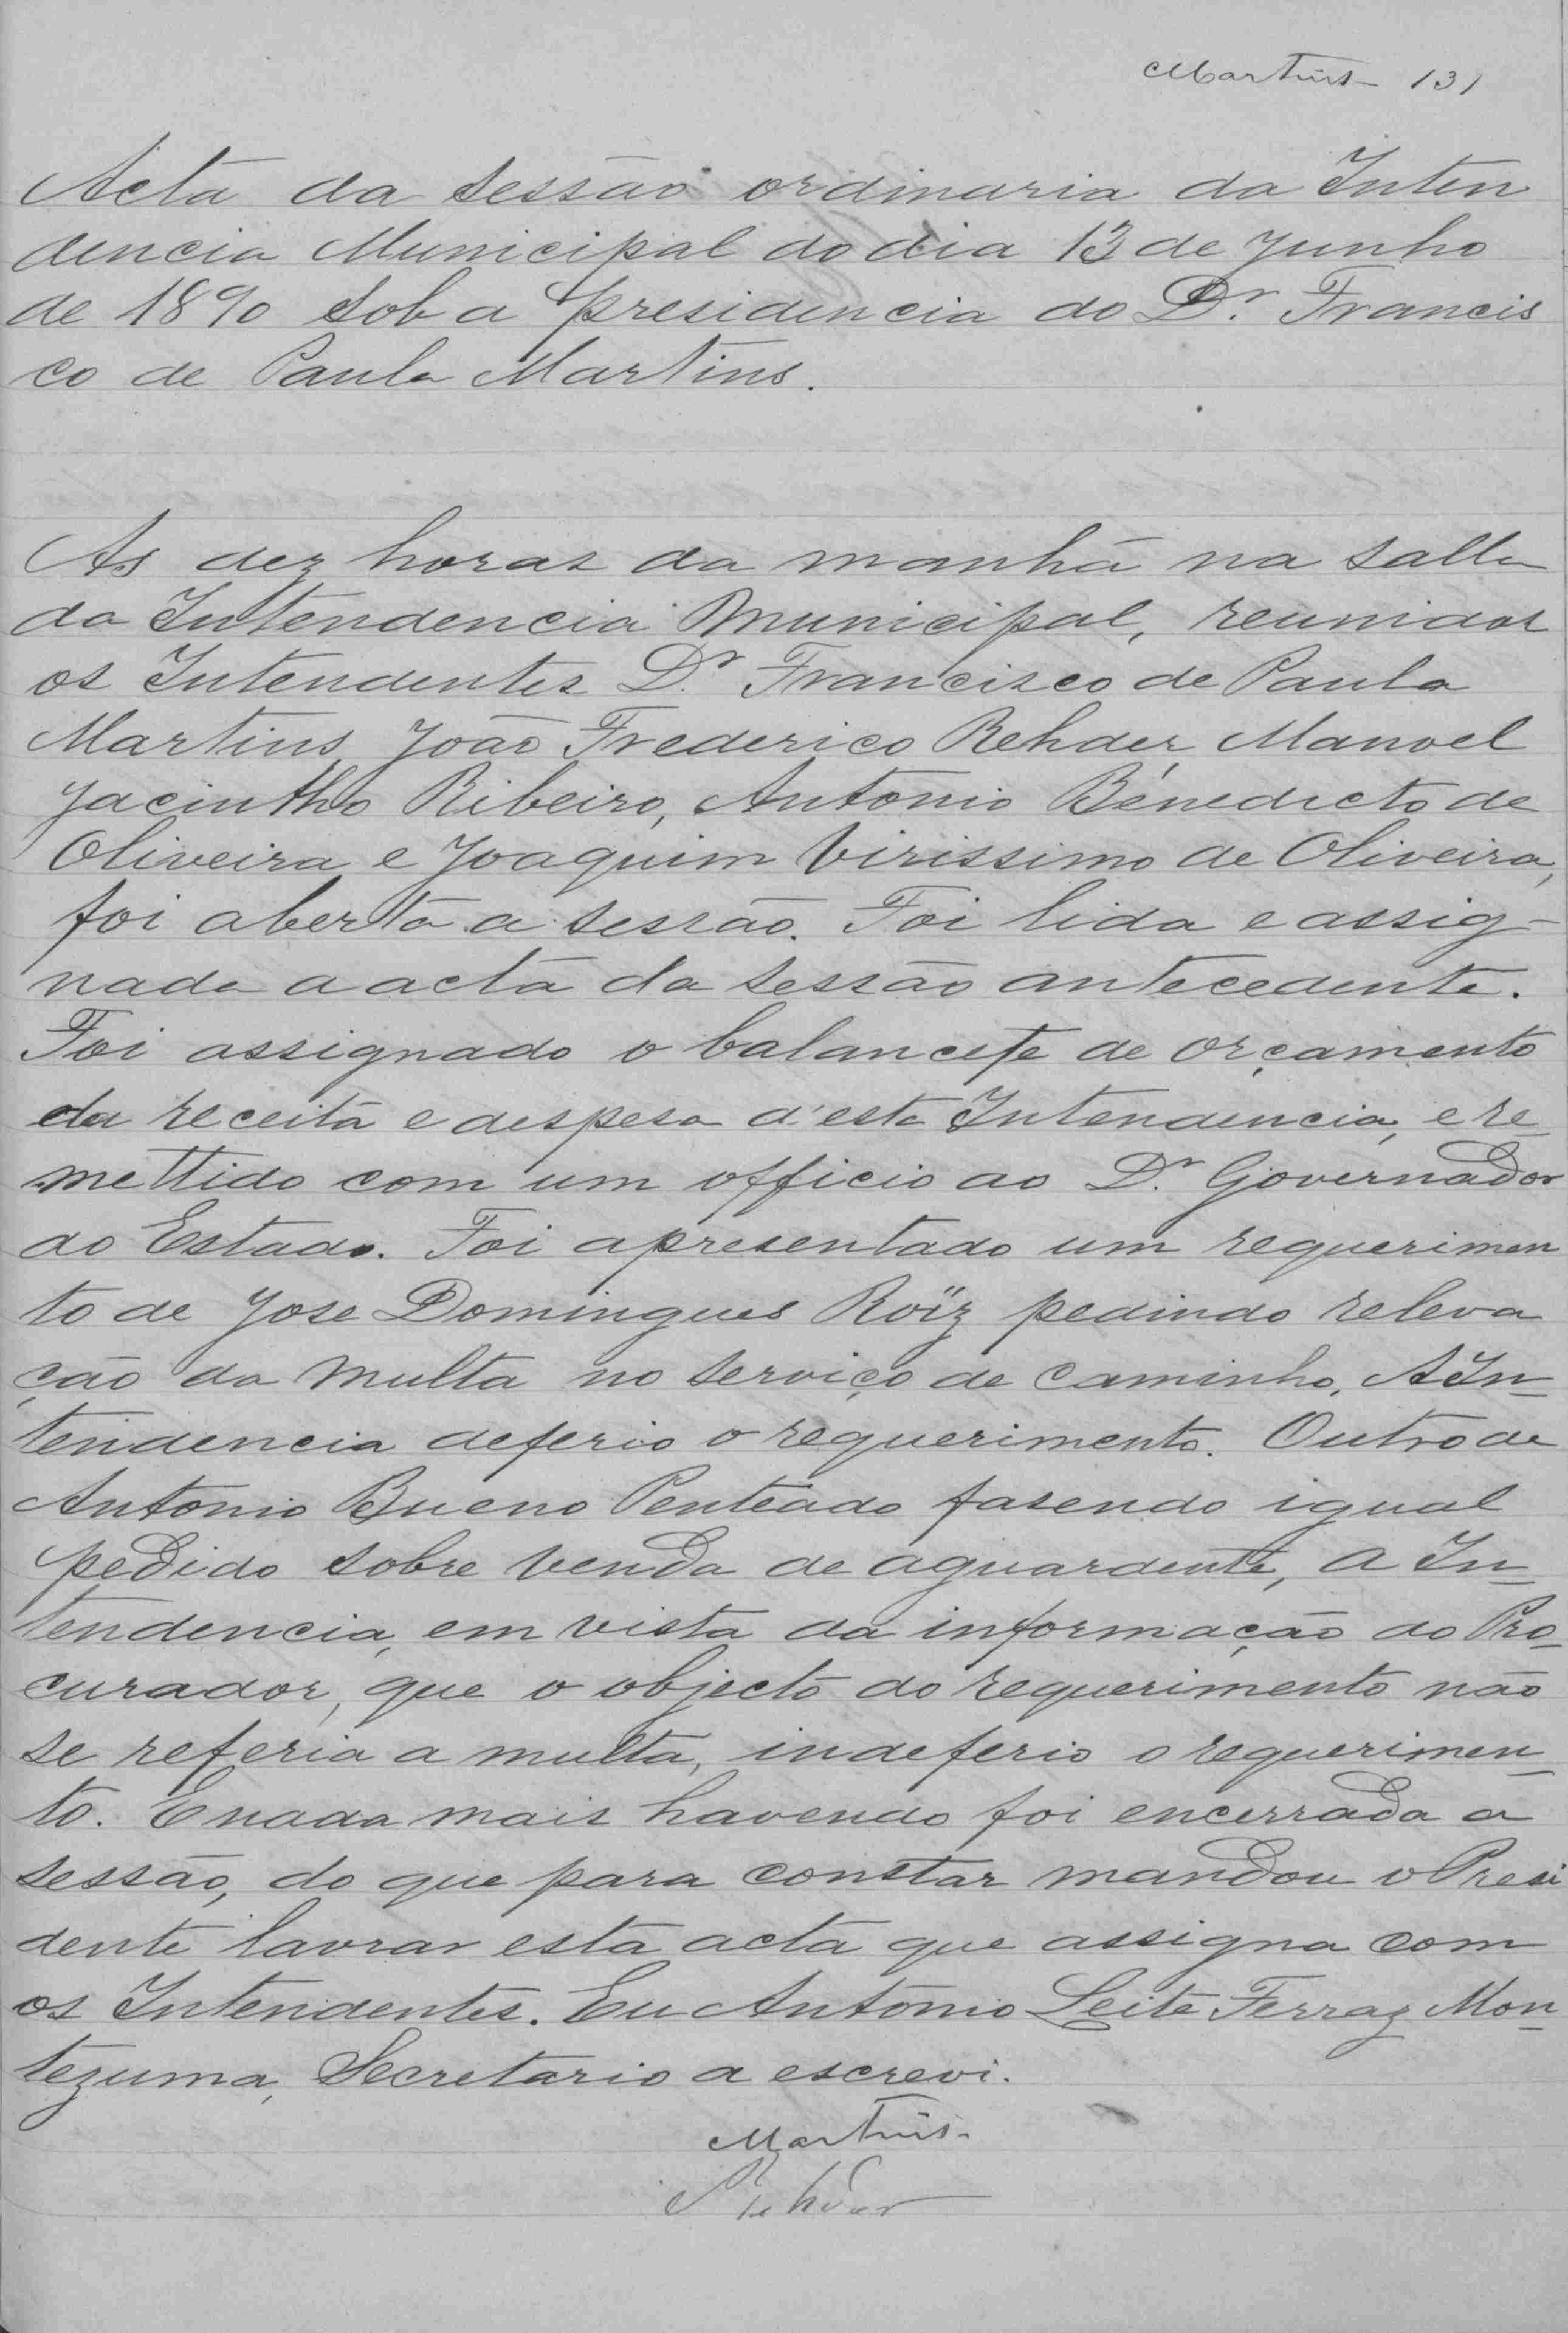 Martins 131
Acta da sessão ordinaria da Inten
dencia Municipal do dia 13 de Junho
de 1890 sob a presidencia do Dr. Francis
co de Paula Martins.
As dez horas da manhã na salla
da Intendencia Municipal, reunidos
os Intendentes Dr. Francisco de Paula
Martins, João Frederico Rehder, Manoel
Jacintho Ribeiro, Antonio Benedicto de
Oliveira e Joaquim Virissimo de Oliveira,
foi aberta a sessão. Foi lida e assig-
nada a acta da sessão antecedente.
Foi assignado o balancete de orçamento
da receita e despesa d'esta Intendencia, e re
mettido com um officio ao Dr. Governador
do Estado. Foi apresentado um requerimen
to de Jose Domingues Roïz pedindo releva
ção da multa no serviço de caminho, A In-
tendencia deferio o requerimento. Outro de
Antonio Bueno Penteado fasendo igual
pedido sobre venda de aguardente, a In-
tendencia, em vista da informação do Pro-
curador, que o objecto do requerimento não
se referia a multa, indeferio o requerimen-
to. E nada mais havendo foi encerrada a
sessão, do que para constar mandou o Presi
dente lavrar esta acta que assigna com
os Intendentes. Eu Antonio Leite Ferraz Mon-
tezuma, Secretario a escrevi.
Martins
Rehder